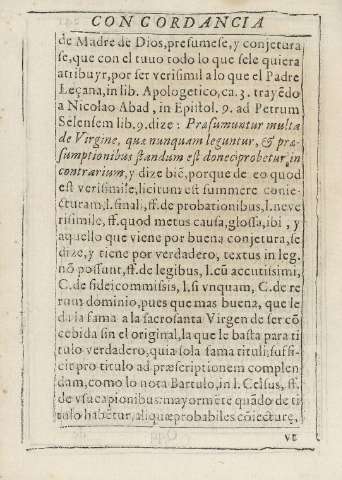 CONCORDANCIA
de Madre de Dios, presumese, y conjetura
se, que con el tuuo todo lo que sele quiera
atribuyr, por ser verisimil a lo que el Padre
Leçana, in lib. Apologetico, ca. 3. trayẽdo
a Nicolao Abad, in Epistol. 9. ad Petrum
Selensem lib. 9. dize: Præsumuntur multa
de Virgine, quæ nunquam leguntur, & præ-
sumptionibus standum est donec iprobetur in
contrarium, y dize biẽ, porque de eo quod
est verisimile, licitum est summere conie-
cturam, l. finali, ff. de probationibus, l. neve
risimile, ff. quod metus causa, glossa, ibi, y
aquello que viene por buena conjetura, se
dize, y tiene por verdadero, textus in leg.
nõ possunt, ff. de legibus, l. cũ accutissimi,
C. de fideicommissis, l. si vnquam, C. de re-
rum dominio, pues que mas buena, que le
da la fama a la sacrosanta Virgen de ser cõ
cebida sin el original, la que le basta para ti
tulo verdadero, quia sola fama tituli, suffi-
cit pro titulo ad præscriptionem complen-
dam, como lo nota Bartulo, in l. Celsus, ff.
de vsucapionibus: mayormẽte quãdo de ti
tulo habẽtur, aliquæ probabiles cõiecturę,
vt